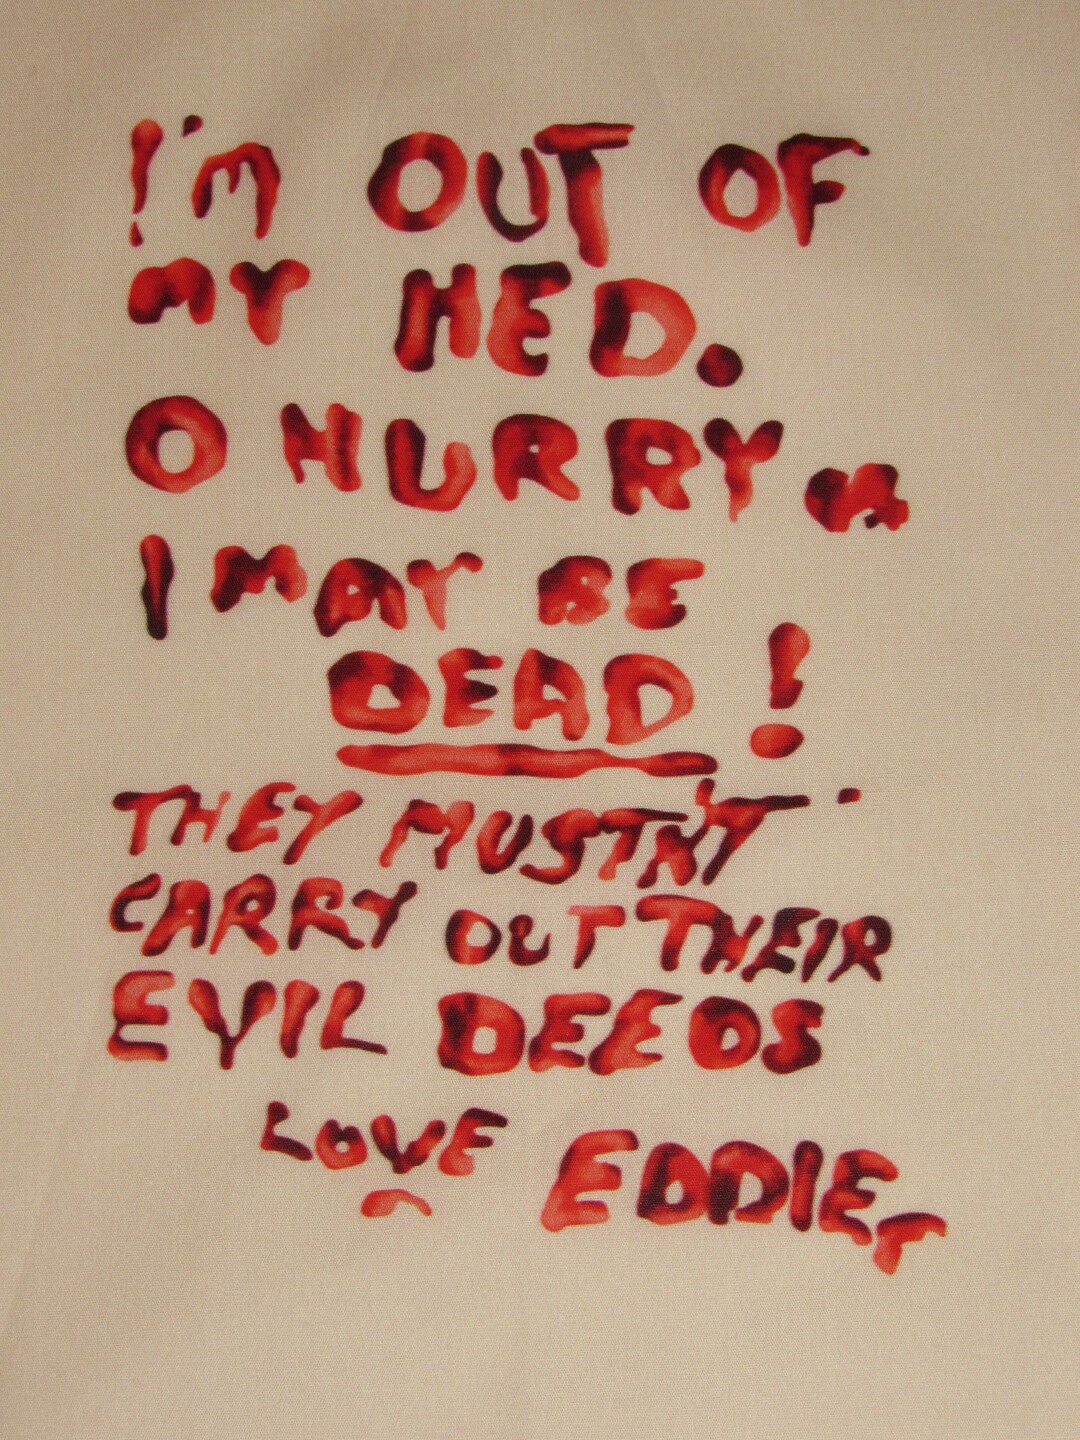 I'M OUT OF
MY HED.
O HURRY
I MAY BE
DEAD!
THEY MUSTN'T
CARRY OUT THEIR
EVIL DEEDS
LOVE EDDIE